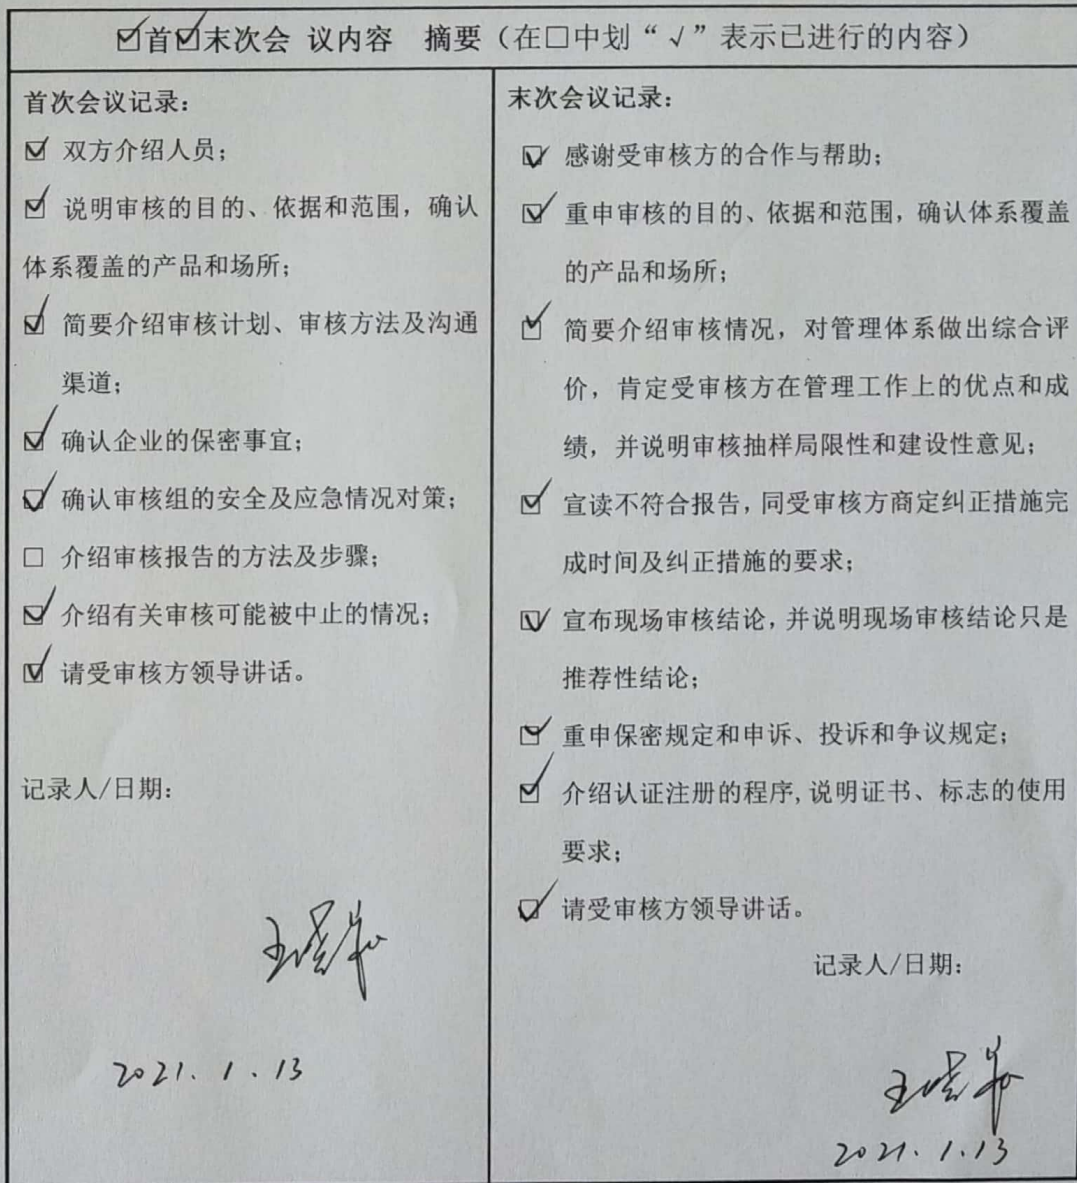 ☑首☑末次会 议内容 摘要（在□中划“√”表示已进行的内容）
首次会议记录：
☑ 双方介绍人员；
☑ 说明审核的目的、依据和范围，确认
体系覆盖的产品和场所；
☑ 简要介绍审核计划、审核方法及沟通
渠道；
☑ 确认企业的保密事宜；
☑ 确认审核组的安全及应急情况对策；
□ 介绍审核报告的方法及步骤；
☑ 介绍有关审核可能被中止的情况；
☑ 请受审核方领导讲话。
记录人/日期：
2021.1.13
末次会议记录：
☑ 感谢受审核方的合作与帮助；
☑ 重申审核的目的、依据和范围，确认体系覆盖
的产品和场所；
☑ 简要介绍审核情况，对管理体系做出综合评
价，肯定受审核方在管理工作上的优点和成
绩，并说明审核抽样局限性和建设性意见；
☑ 宣读不符合报告，同受审核方商定纠正措施完
成时间及纠正措施的要求；
☑ 宣布现场审核结论，并说明现场审核结论只是
推荐性结论；
☑ 重申保密规定和申诉、投诉和争议规定；
☑ 介绍认证注册的程序,说明证书、标志的使用
要求；
☑ 请受审核方领导讲话。
记录人/日期：
2021.1.13